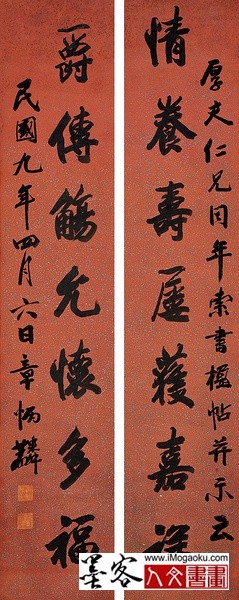 厚夫仁兄同年索書楹帖并示云
情養壽屢獲嘉
爵傳觴允懷多福
民國九年四月六日章炳麟
墨客
www.iMogaoku.com
人文書畫